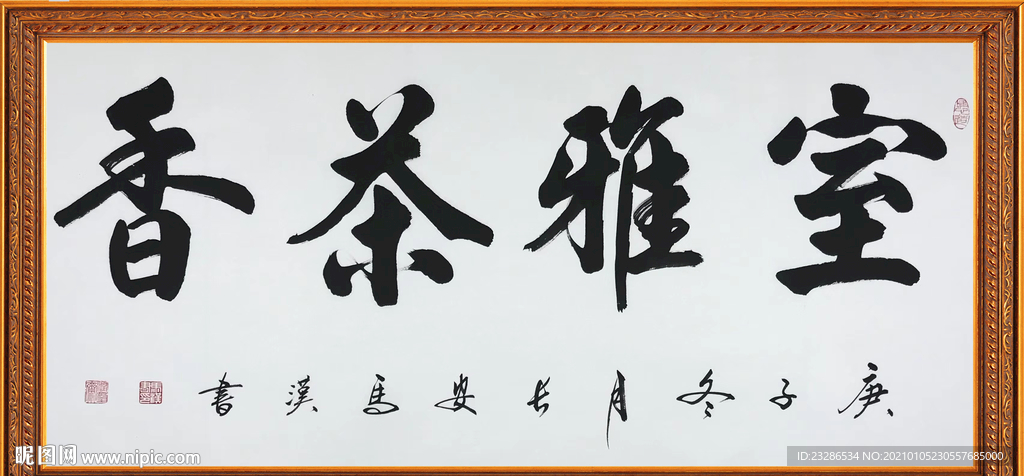 室雅茶香
庚子冬月长安马汉書
昵图网 www.nipic.com
ID:23286534 NO:20210105230557685000